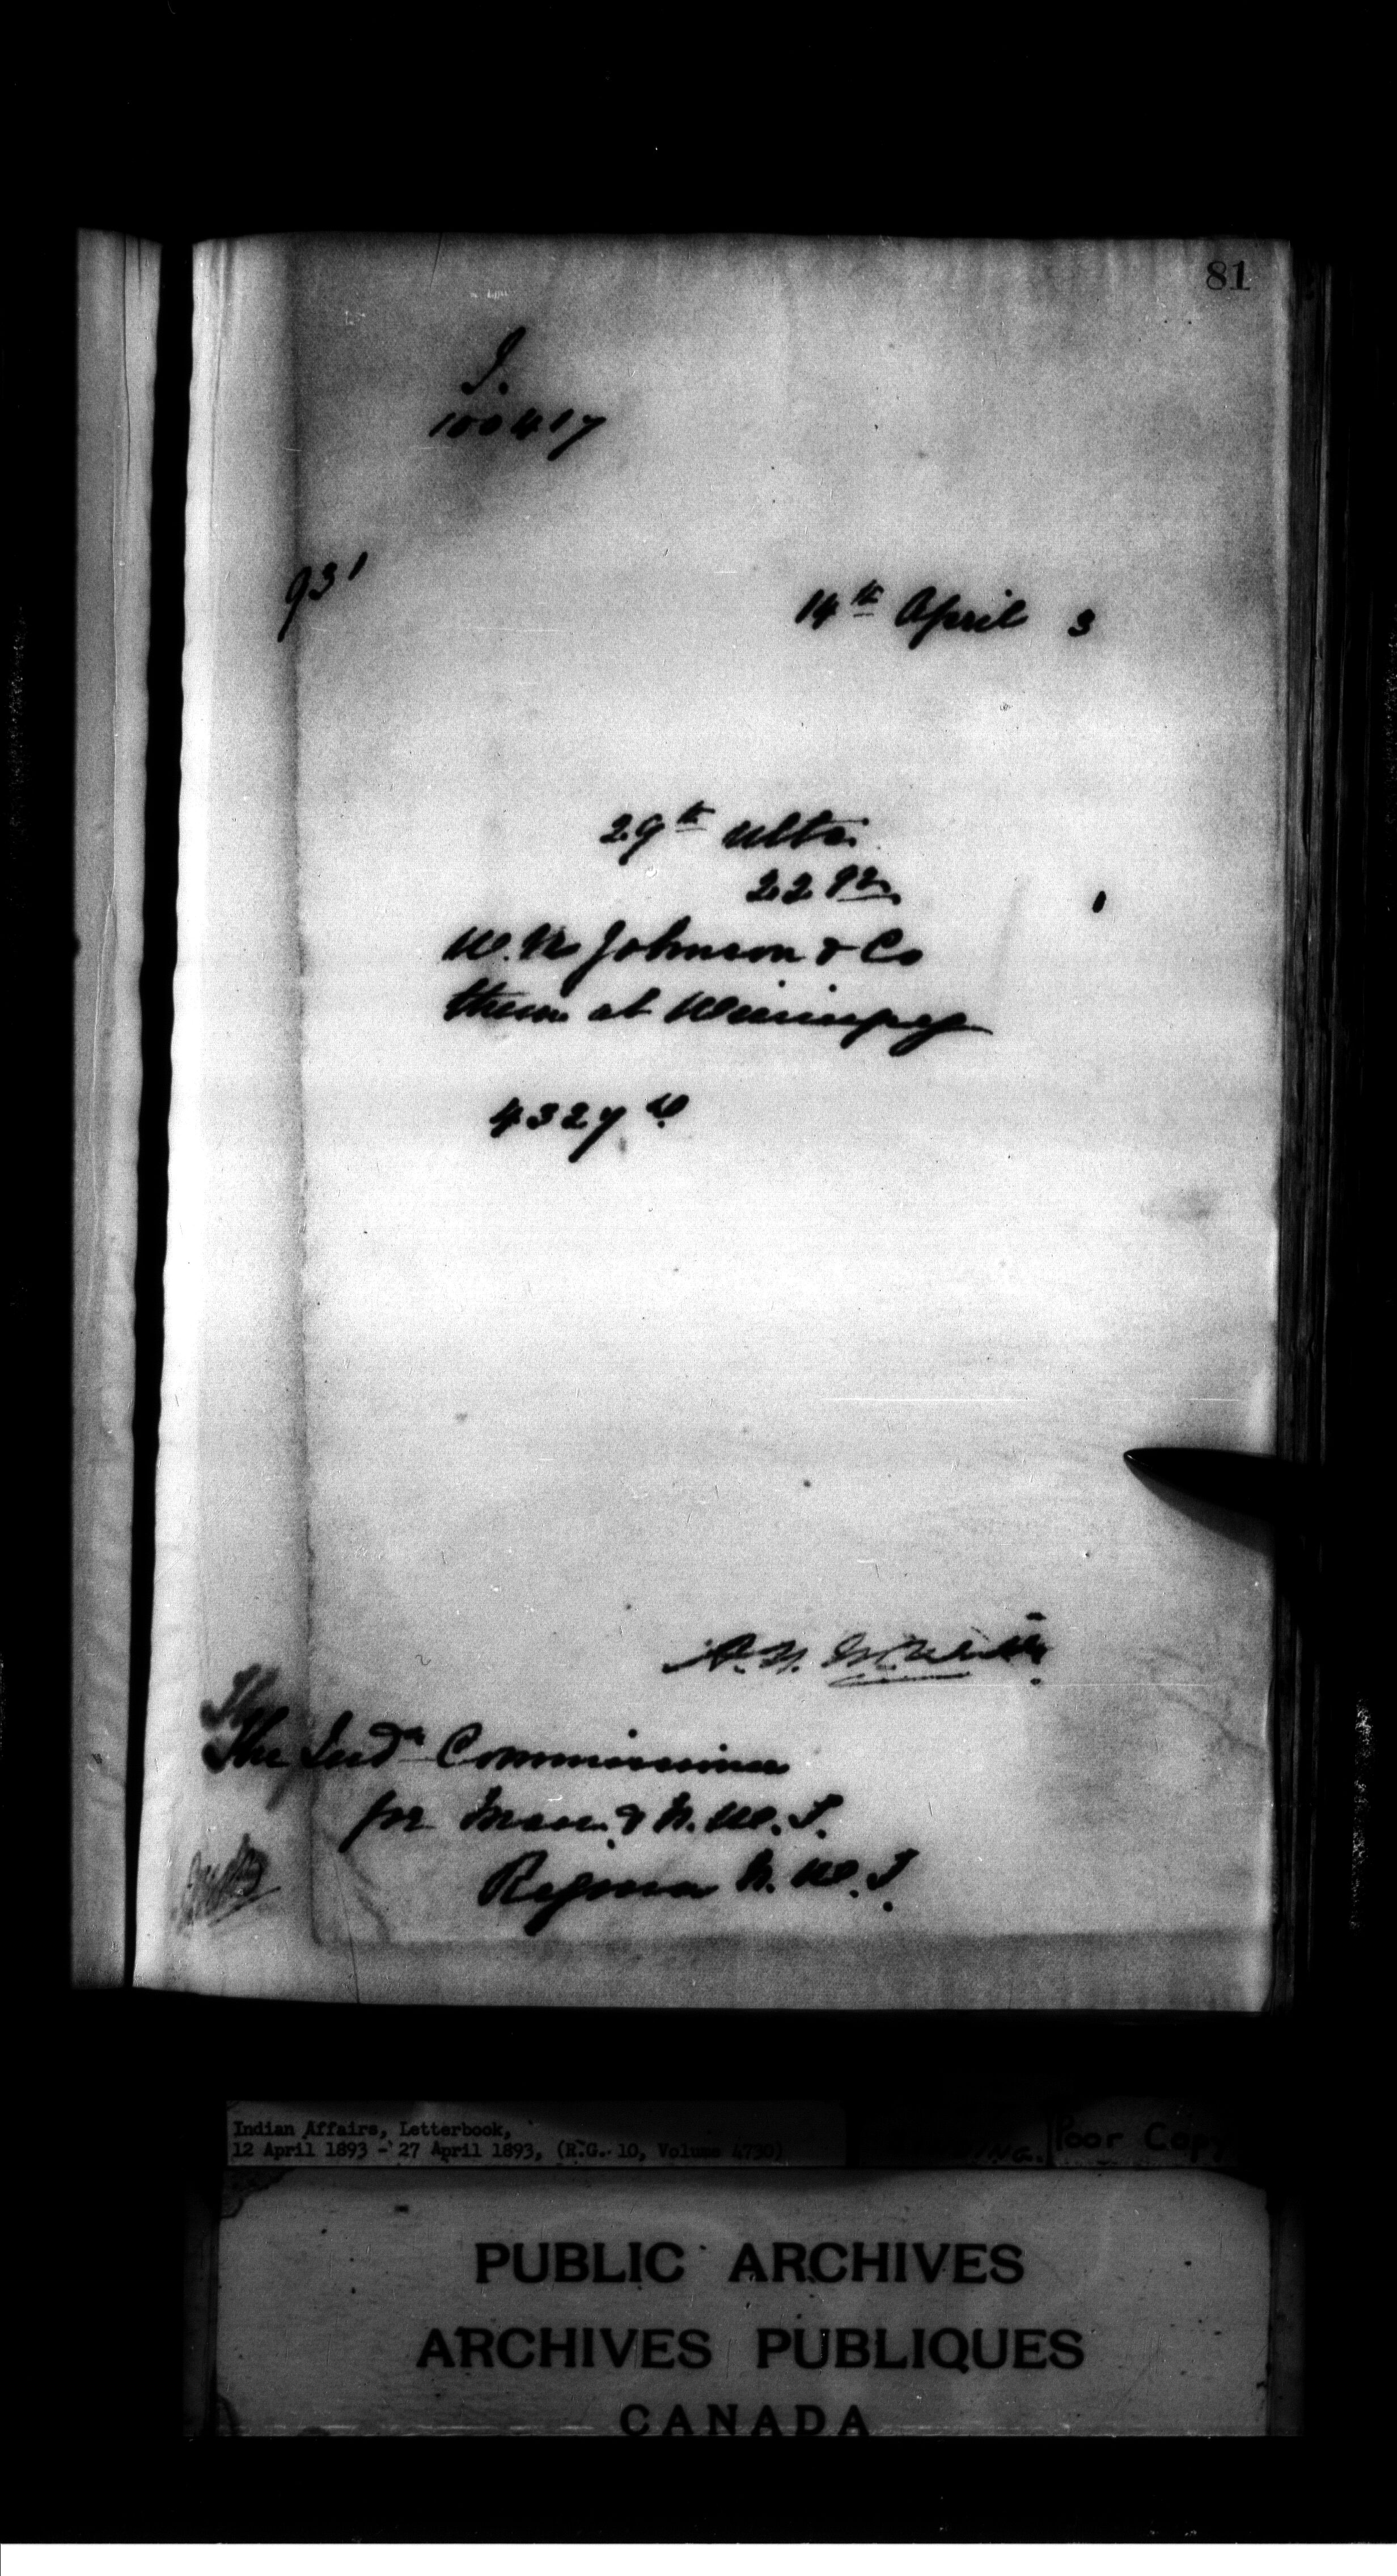 81
I.
100417
931
14th April 3
29th Ulto.
22 92
1
W. N Johnson & Co
them at Winnipeg
4327
The
The Indn Commissioner
for Man. & N. W. T.
Regina N. W. T
Indian Affairs, Letterbook,
12 April 1893 - 27 April 1893, (R.G. 10, Volume 4730)
Poor Copy
PUBLIC ARCHIVES
ARCHIVES PUBLIQUES
CANADA